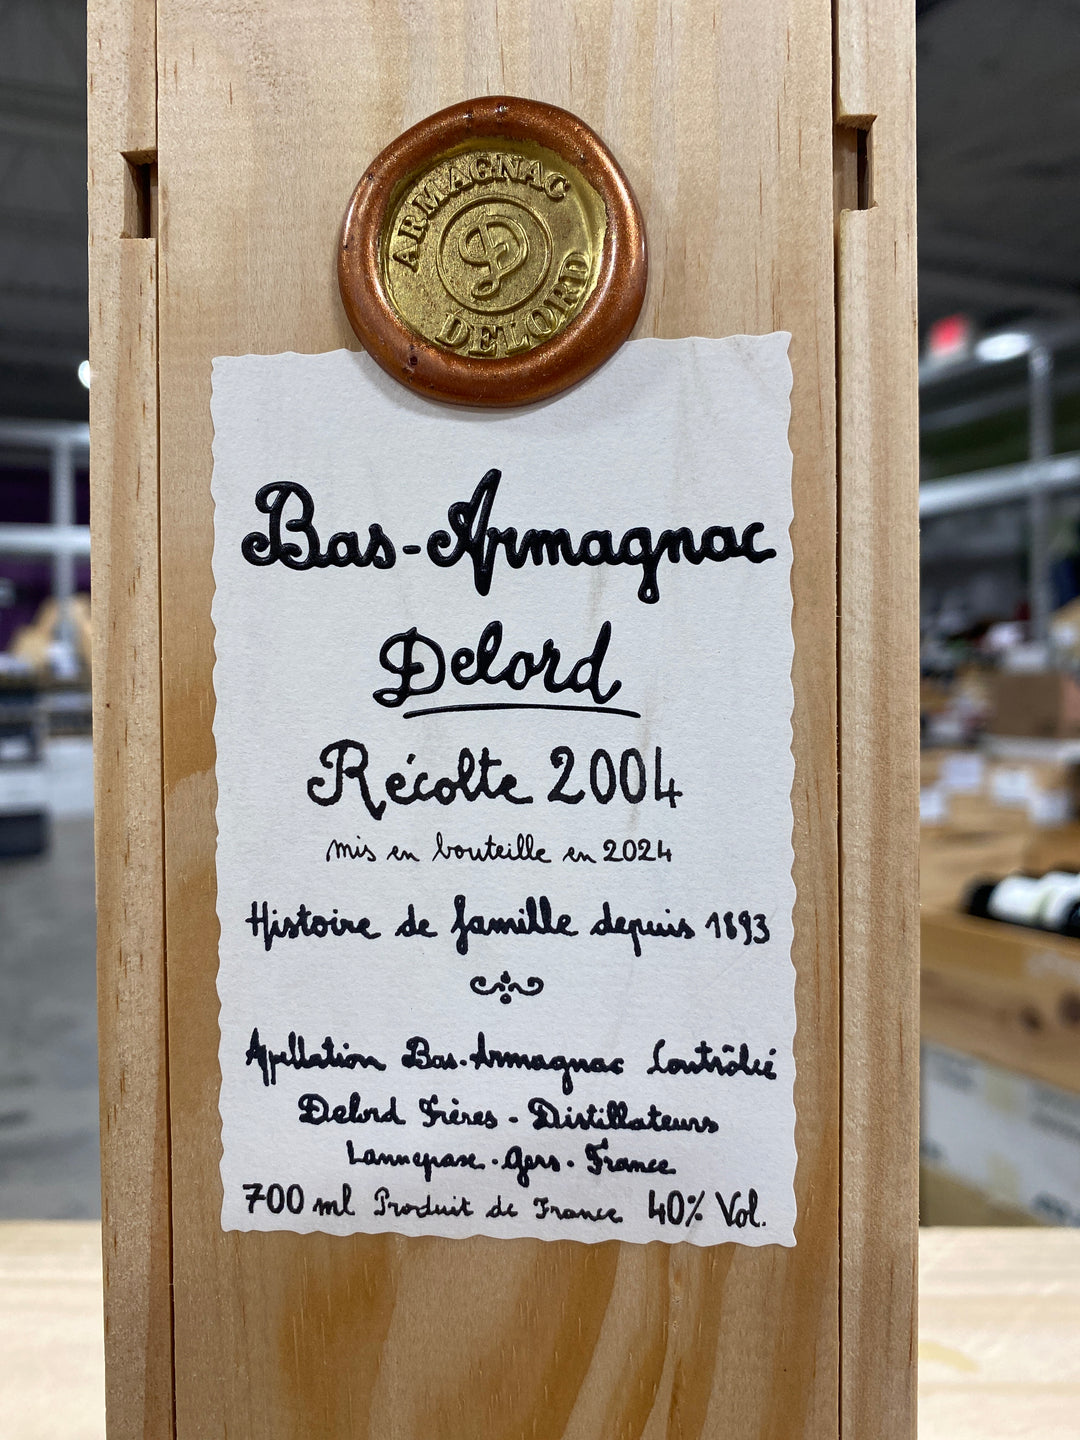 ARMAGNAC
D
DELORD
Bas-Armagnac
Delord
Récolte 2004
mis en bouteille en 2024
Histoire de famille depuis 1893
Appellation Bas-Armagnac Contrôlée
Delord Frères - Distillateurs
Lannepax - Gers - France
700 ml Produit de France 40% Vol.